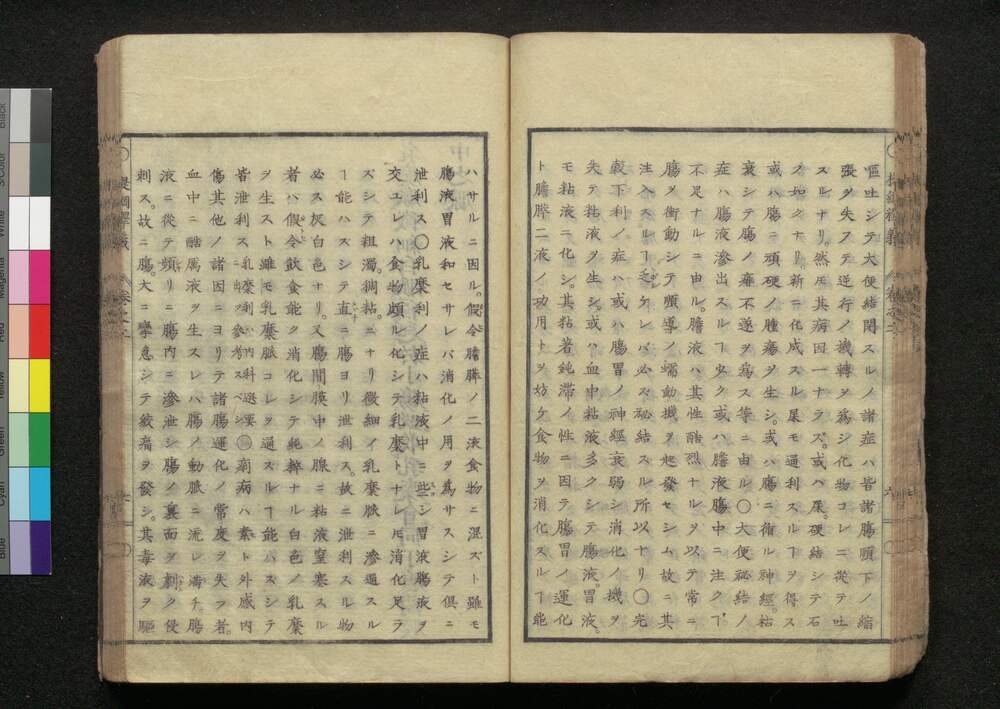 嘔吐シテ大便結閉スルノ諸症ハ皆諸腸順下ノ縮
張ヲ失フテ逆行ノ機轉ヲ爲シ化物コレニ從テ吐
スルナリ。然モ其病因一ナラス。或ハ屎硬結シテ石
ノ如クナリ。新ニ化成スル屎モ通利スルヿヲ得ス
或ハ腸ニ頑硬ノ腫瘍ヲ生シ。或ハ腸ニ循ル神經。枯
衰シテ腸ノ痲不遂ヲ爲ス等ニ由ル〇大便秘結ノ
症ハ腸液滲出スルヿ少ク或ハ膽液腸中ニ注クヿ
不足ナルニ由ル。膽液ハ其性酷烈ナルヲ以テ常ニ
腸ヲ衝動シテ順導ノ蠕動機ヲ起發セシム故ニ其
注入スルヿ乏ケレバ必ス祕結スル所以ナリ〇完
穀下利ノ症ハ或ハ腸胃ノ神經衰弱シ消化ノ機ヲ
失テ粘液ヲ生シ。或ハ血中粘液多クシテ腸液。胃液。
モ粘液ニ化シ。其粘著鈍滯ノ性ニ因テ腸胃ノ運化
ト膽膵二液ノ功用トヲ妨ケ食物ヲ消化スルヿ能
六
ハサルニ因ル。假令膽膵ノ二液食物ニ混ズト雖モ
腸液胃液和セサレバ消化ノ用ヲ爲サスシテ倶ニ
泄利ス〇乳糜利ノ症ハ粘液中ニ些シ胃液腸液ヲ
交ユレハ食物頗ル化シテ乳糜トナレトモ消化足ラ
ズシテ粗濁。稠粘ニナリ微細ノ乳糜脈ニ滲通スル
ヿ能ハスシテ直ニ腸ヨリ泄利ス。故ニ泄利スル物
必ス灰白色ナリ。又腸間膜中ノ腺ニ粘液窒塞スル
者ハ假令飲食能ク消化シテ純粹ナル白色ノ乳糜
ヲ生スト雖モ乳糜脈コレヲ通スルヿ能ハスシテ
皆泄利ス乳糜利ハ内科選要ニ出ツ參考スベシ〇痢病ハ素ト外感内
傷其他ノ諸因ニヨリテ諸腸運化ノ常度ヲ失フ者。
血中ニ酷厲液ヲ生スレハ腸ノ動脈ニ流レ濟チ腸
液ニ從テ頻リニ腸内ニ滲泄シ腸ノ裏面ヲ剩ク侵
刺ス。故ニ腸大コニ攣急シテ絞痛ヲ發シ。其毒液ヲ驅
七